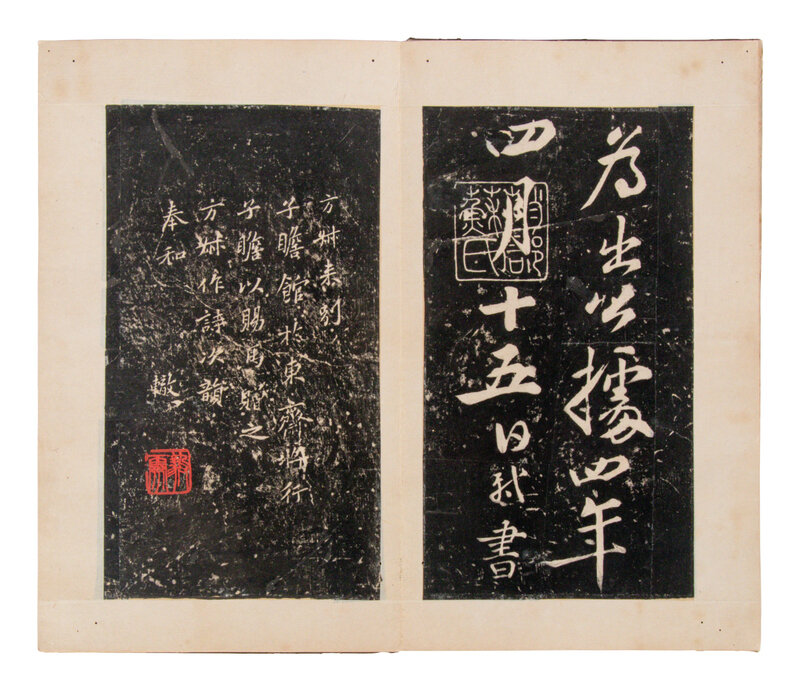 為出公據四年
四月十五日軾書
方叔來別
子瞻館於東齋將行
子瞻以賜馬贈之
方叔作詩次韻
奉和 轍